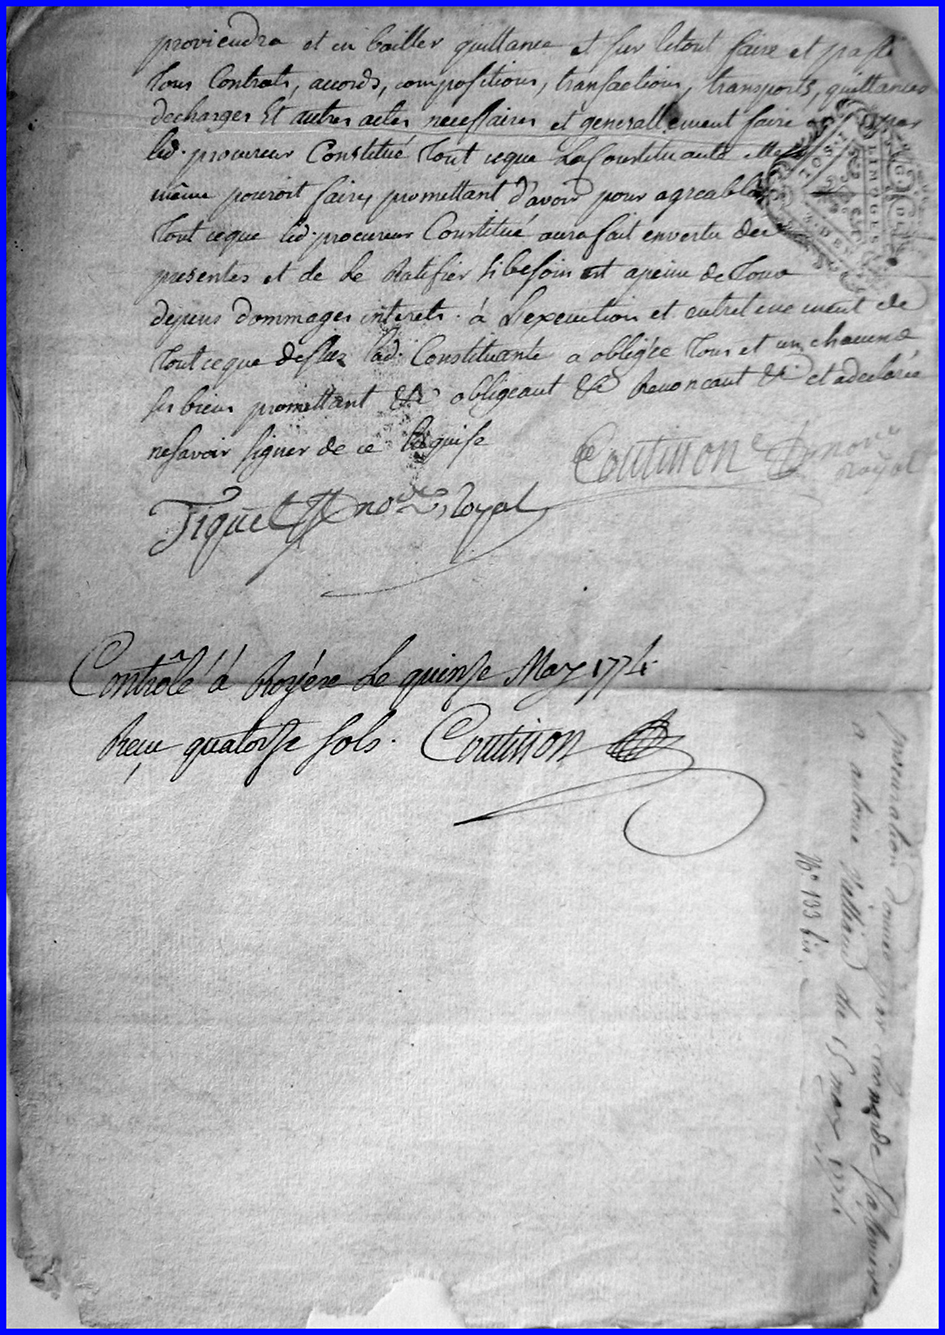 proviendra et en bailler quittance et sur letout faire et passé
Tous Contrats, accords, compositions, transactions, transports, quittances
decharges Et autres actes necessaires et generallement faire par
led. procureur Constitué Tout ceque La Constituante elle
même pouroit faire, promettant d'avoir pour agreable
Tout ceque led. procureur Constitué aura fait envertu des
presentes et de Le Ratifier si besoin est apeine de Tous
depens dommages interets. à L'execution et entretenement de
Tout ceque dessus lad. Constituante a obligée Tous et un chacuns
ses biens promettant &c obligeant &c Renoncant &c et adeclaré
nesavoir signer de ce Requise
Coutisson nre royal
Fiquet nore Royal
LIMOGES
Contrôlé à Royére Le quinse May 1774
Reçu quatorse sols. Coutisson
procuration donnée par
a antoine de 15 may 1774
No 133 bis